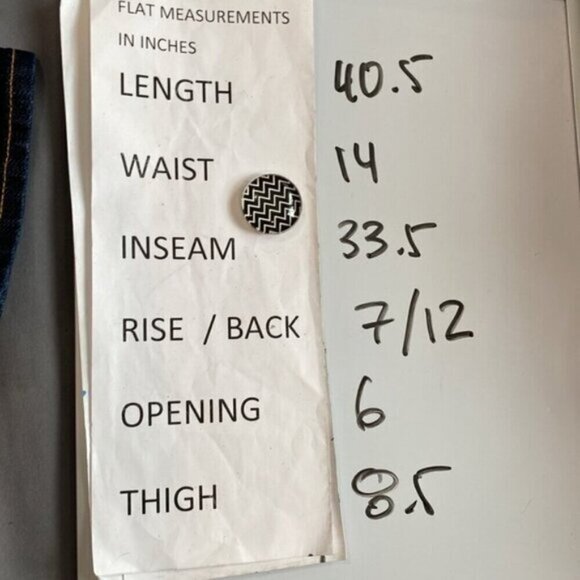 FLAT MEASUREMENTS
IN INCHES
LENGTH 40.5
WAIST 14
INSEAM 33.5
RISE / BACK 7/12
OPENING 6
THIGH 8.5